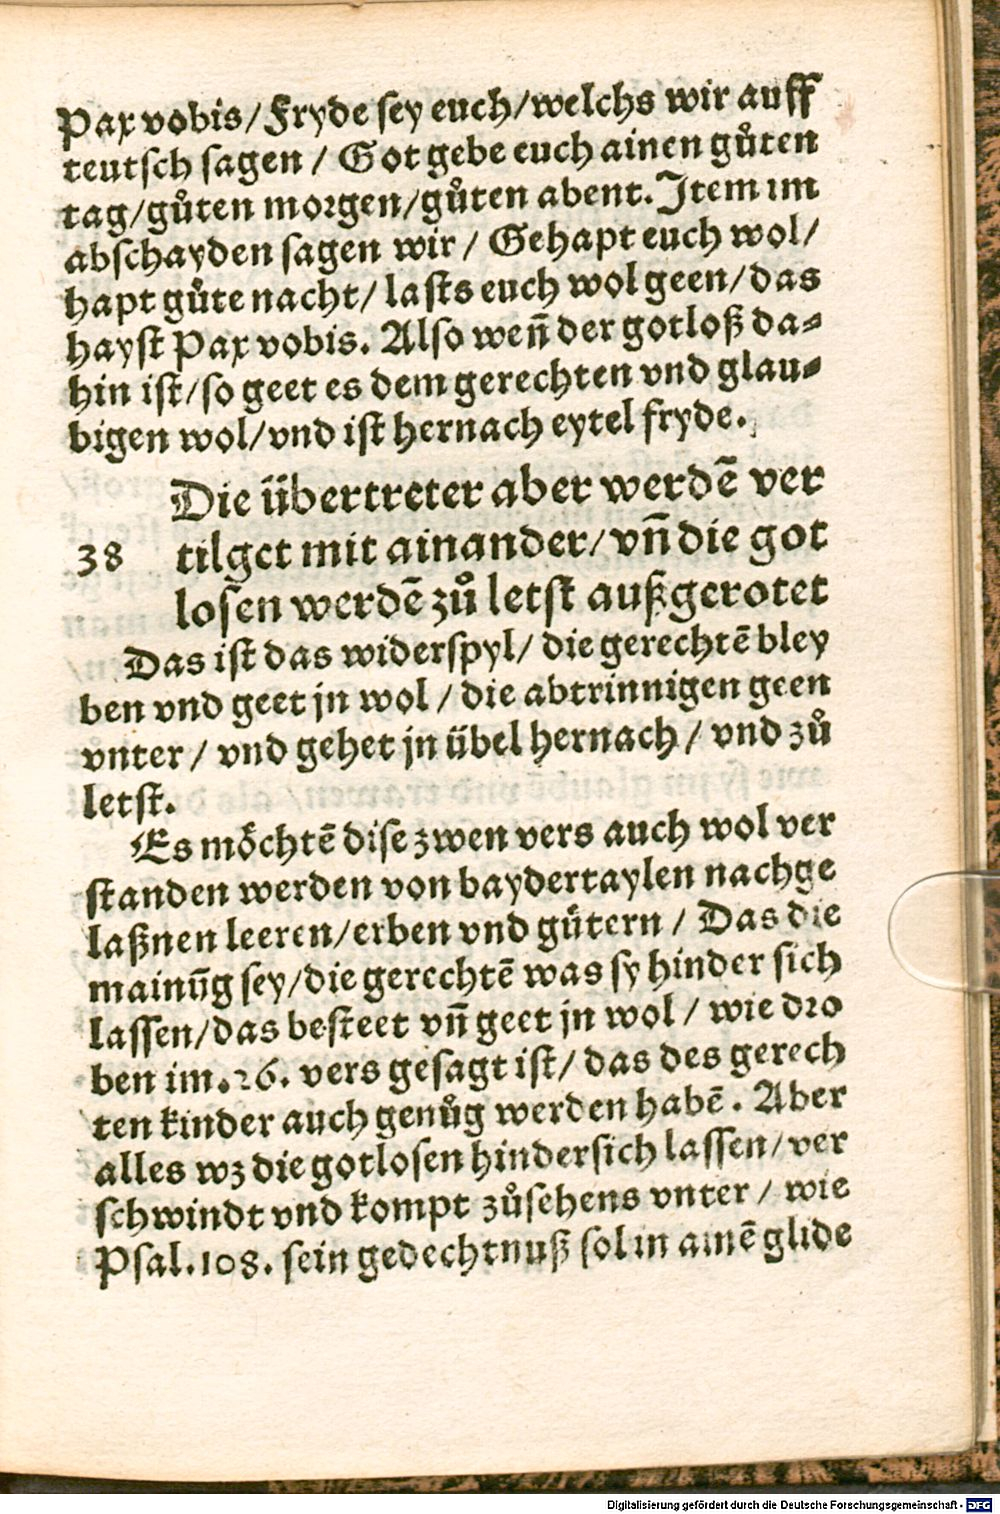 Pax vobis/ Fryde sey euch/welchs wir auff
teutsch sagen / Got gebe euch ainen gůten
tag/gůten morgen/gůten abent. Item im
abschayden sagen wir / Gehapt euch wol/
hapt gůte nacht/ lasts euch wol geen/ das
hayst Pax vobis. Also weñ der gotloß da-
hin ist/so geet es dem gerechten vnd glau-
bigen wol/vnd ist hernach eytel fryde.
Die übertreter aber werdẽ ver
38 tilget mit ainander/ vñ die got
losen werdẽ zů letst außgerotet
Das ist das widerspyl/ die gerechtẽ bley
ben vnd geet jn wol / die abtrinnigen geen
vnter / vnd gehet jn übel hernach / vnd zů
letst.
Es möchtẽ dise zwen vers auch wol ver
standen werden von baydertaylen nachge
laßnen leeren/erben vnd gütern / Das die
mainũg sey/die gerechtẽ was sy hinder sich
lassen/das besteet vñ geet jn wol / wie dro
ben im .26. vers gesagt ist/ das des gerech
ten kinder auch genůg werden habẽ . Aber
alles wz die gotlosen hindersich lassen/ ver
schwindt vnd kompt zůsehens vnter / wie
Psal. 108. sein gedechtnuß sol in ainẽ glide
Digitalisierung gefördert durch die Deutsche Forschungsgemeinschaft - DFG